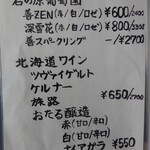 岩の原葡萄園
善ZEN(赤/白/ロゼ) ¥600/2400
深雪花(赤/白/ロゼ) ¥800/3300
善スパークリング -/¥2700
北海道ワイン
ツヴァイゲルト
ケルナー
旅路
¥650/2700
おたる醸造
赤(甘口/辛口)
白(甘口/辛口)
ナイアガラ ¥550